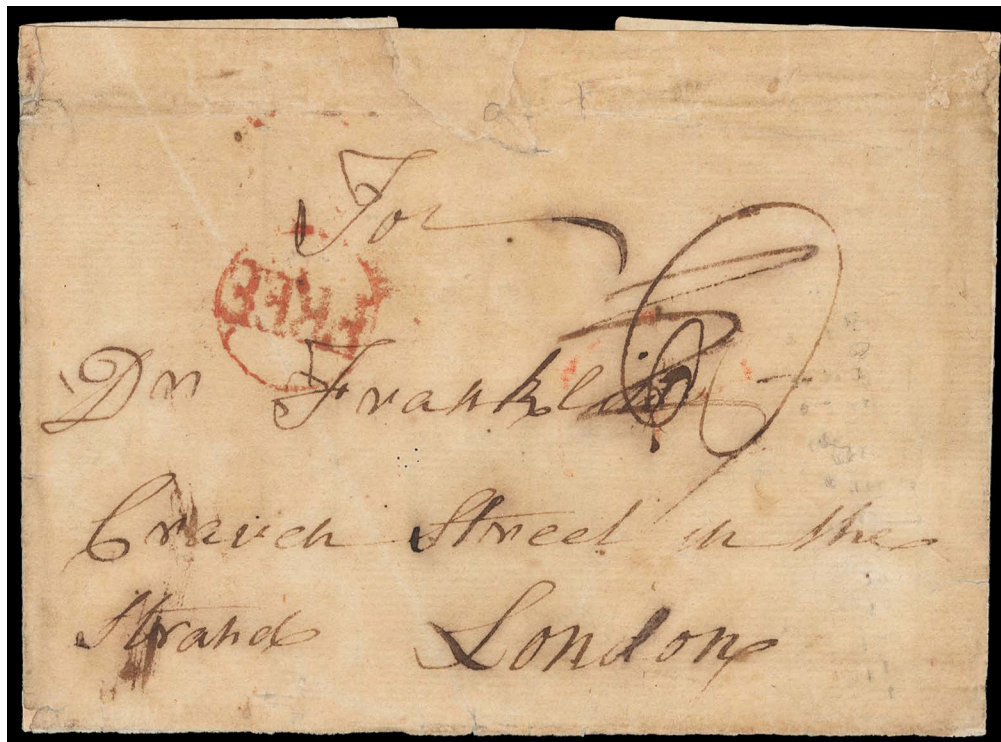 For
FREE
Dr Franklin
Craven Street in the
Strand London